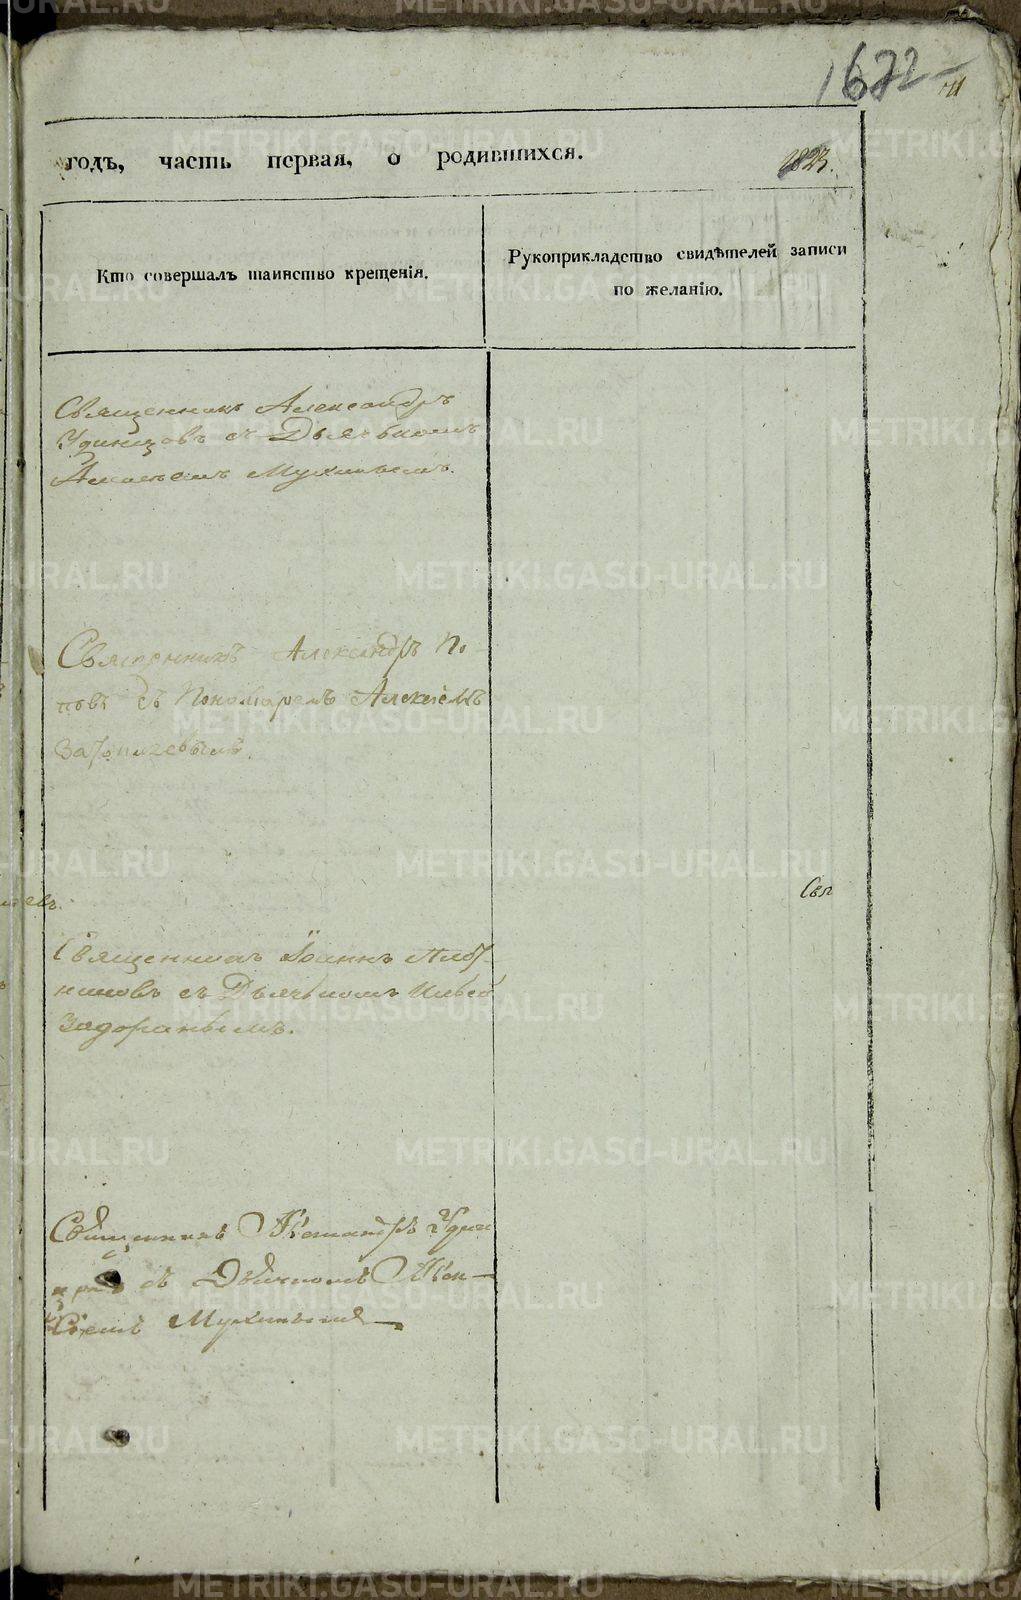 1672
71
годъ, часть первая, о родившихся.
1823.
Кто совершалъ таинство крещенія.
Рукоприкладство свидѣтелей записи
по желанію.
Священникъ Александръ
Удинцовъ съ Дьячькомъ
Алексѣемъ Мухинымъ.
Священникъ Александръ По
повъ съ Пономаремъ Алексѣемъ
Свя
Священникъ Іоаннъ
съ Дьячькомъ Ильей
Задоринымъ.
Священникъ Александръ Удин
съ Дьячкомъ Алек-
сѣемъ Мухинымъ
METRIKI.GASO-URAL.RU